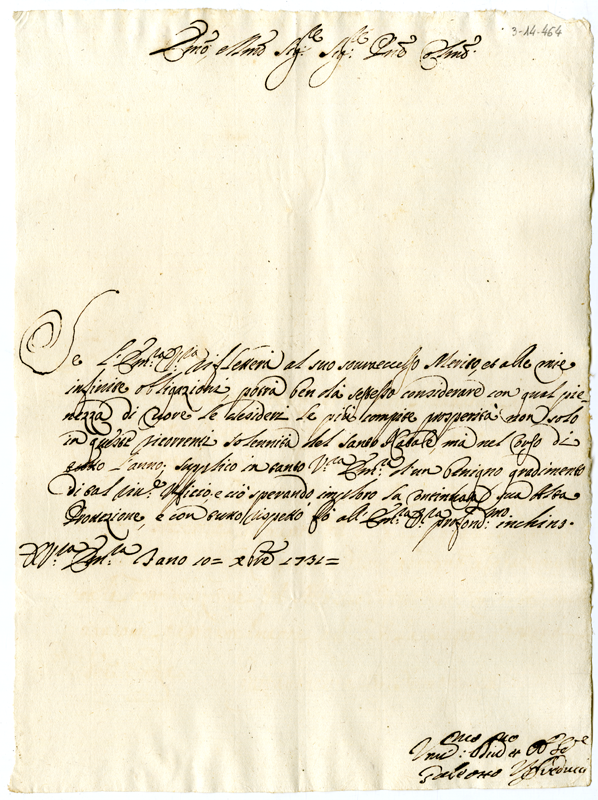 3-14-464
Em.o, e Rmo Sig.re Sig.r Prõ Colmo
Se l'Em.za V.ra rifletterà al suo sovraeccelso Merito, et alle mie
infinite obligazioni potrà ben da se stesso considerare con qual pie
nezza di Cuore le desideri le più compite prosperità non solo
in queste ricorrenti solennità del Santo Natale, mà nel Corso di
tutto l'anno; supplico in tanto V.ra Em.za d'un benigno gradimento
di tal Uffício, e ciò sperando imploro la continuata sua Alta
Protezione, e con tutto rispetto fò all'Em.za V.ra profond.mo inchino.
D. V.ra Em.za Fano 10= Xbre 1731=
Umil.mo Dev.mo Ob Se.re
Galeotto Uffreducci